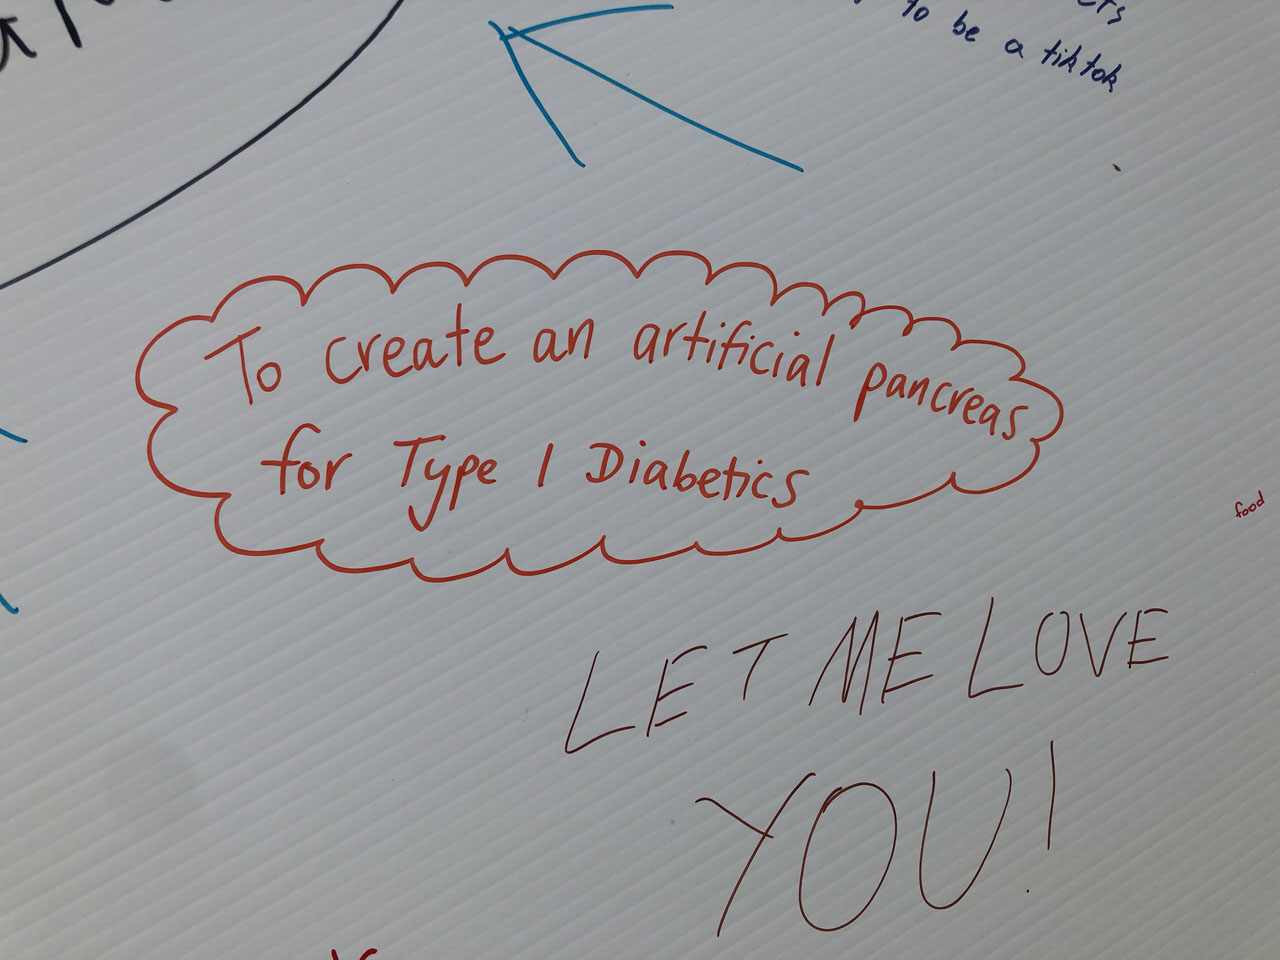 to be a tiktok
To create an artificial pancreas
for Type 1 Diabetics
food
LET ME LOVE
YOU!